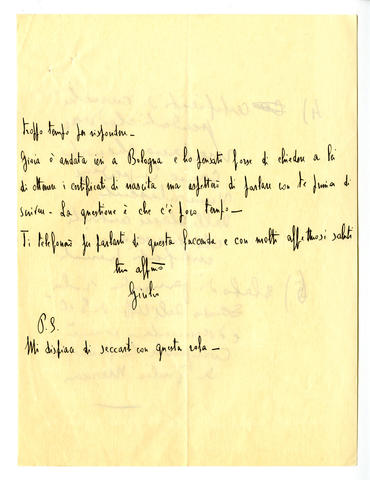 troppo tempo per rispondere_
Gioia è andata ieri a Bologna e ho pensato forse di chiedere a lei
di ottenere i certificati di nascita ma aspetterò di parlare con te prima di
scrivere_ La questione è che c'è poco tempo_
Ti telefonerò per parlarti di questa faccenda e con molti affettuosi saluti
tuo affmo
Giulio
P.S.
Mi dispiace di seccarti con questa roba_